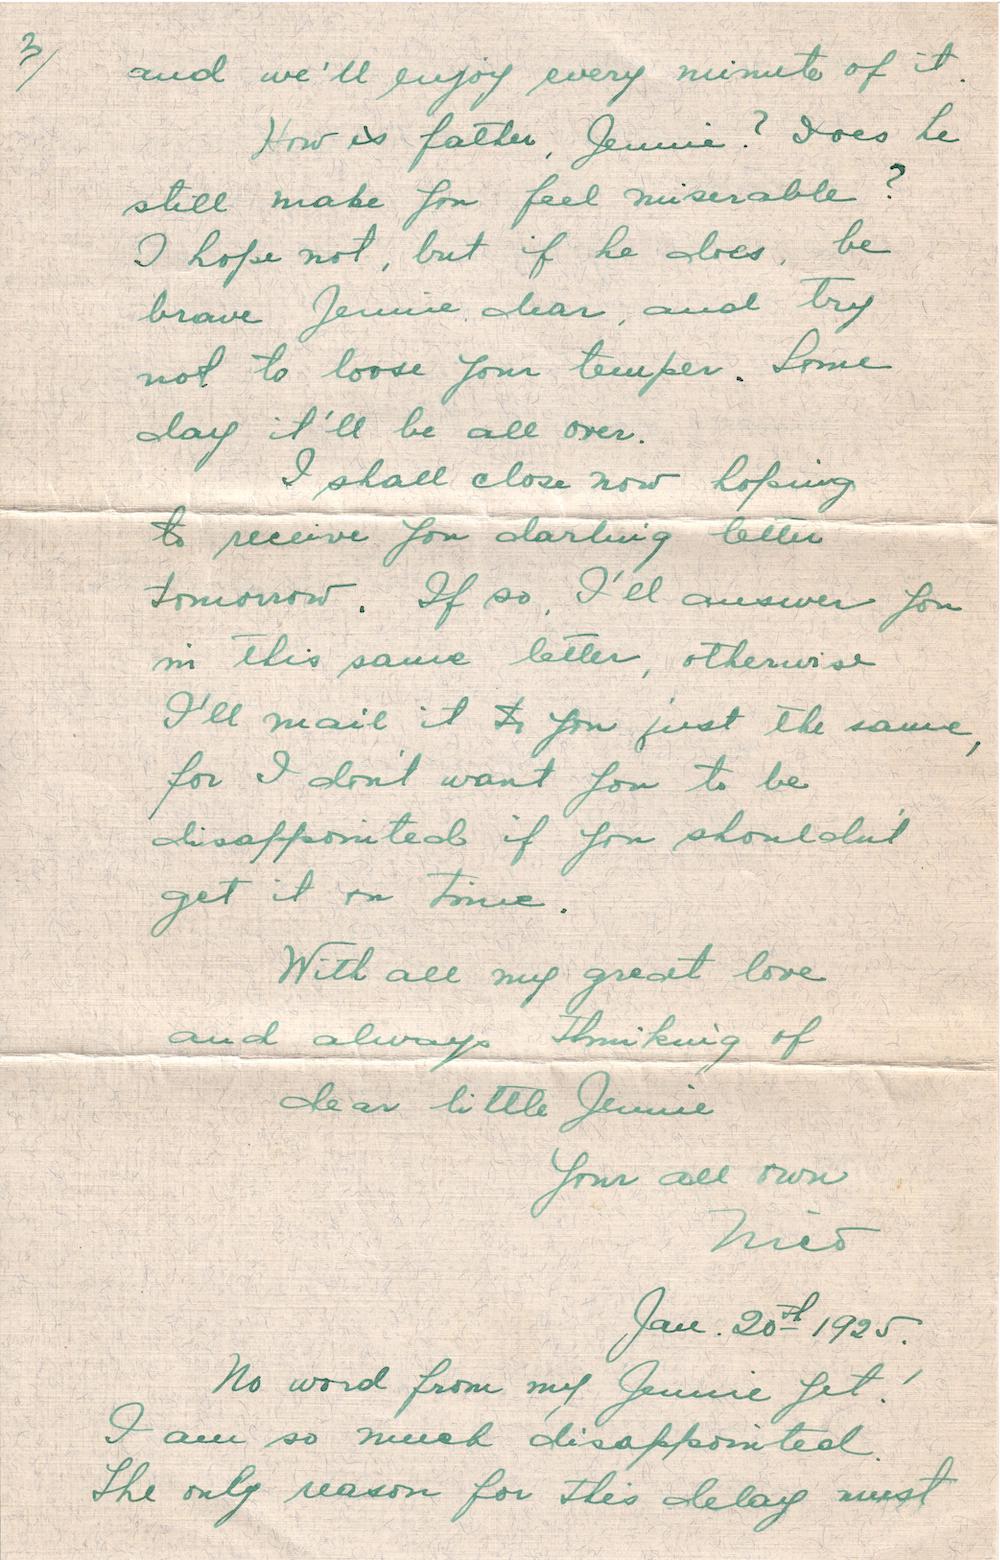 3/
and we'll enjoy every minute of it.
How is father, Jennie? Does he
still make you feel miserable?
I hope not, but if he does, be
brave Jennie dear, and try
not to loose your temper. Some
day it'll be all over.
I shall close now hoping
to receive you darling letter
tomorrow. If so, I'll answer you
in this same letter, otherwise
I'll mail it to you just the same,
for I don't want you to be
disappointed if you shouldn't
get it on time.
With all my great love
and always thinking of
dear little Jennie
Your all own
Nico
Jan. 20th 1925.
No word from my Jennie yet!
I am so much disappointed.
The only reason for this delay must